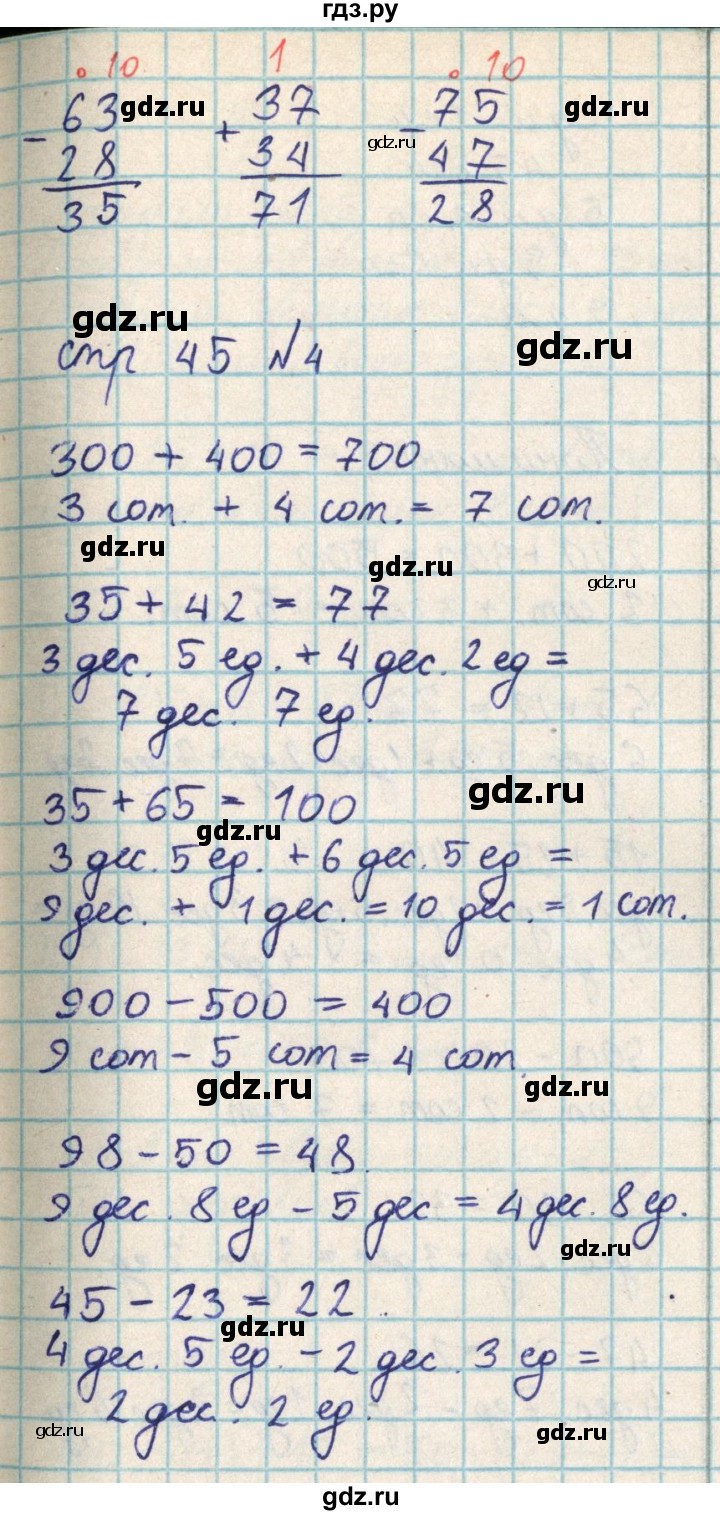 гдз.ру
• 10 1 • 10
- 63 + 37 - 75
28 34 47
35 71 28
gdz.ru gdz.ru gdz.ru
gdz.ru
gdz.ru
стр 45 №4
300 + 400 = 700
3 сот. + 4 сот. = 7 сот.
gdz.ru gdz.ru gdz.ru
35 + 42 = 77
3 дес. 5 ед. + 4 дес. 2 ед =
7 дес. 7 ед.
35 + 65 = 100
gdz.ru gdz.ru
3 дес. 5 ед. + 6 дес. 5 ед =
9 дес. + 1 дес. = 10 дес. = 1 сот.
900 - 500 = 400
9 сот - 5 сот = 4 сот.
gdz.ru gdz.ru
98 - 50 = 48.
9 дес. 8 ед - 5 дес = 4 дес. 8 ед.
gdz.ru
45 - 23 = 22.
gdz.ru
4 дес. 5 ед. - 2 дес. 3 ед =
2 дес. 2 ед.
gdz.ru gdz.ru
gdz.ru